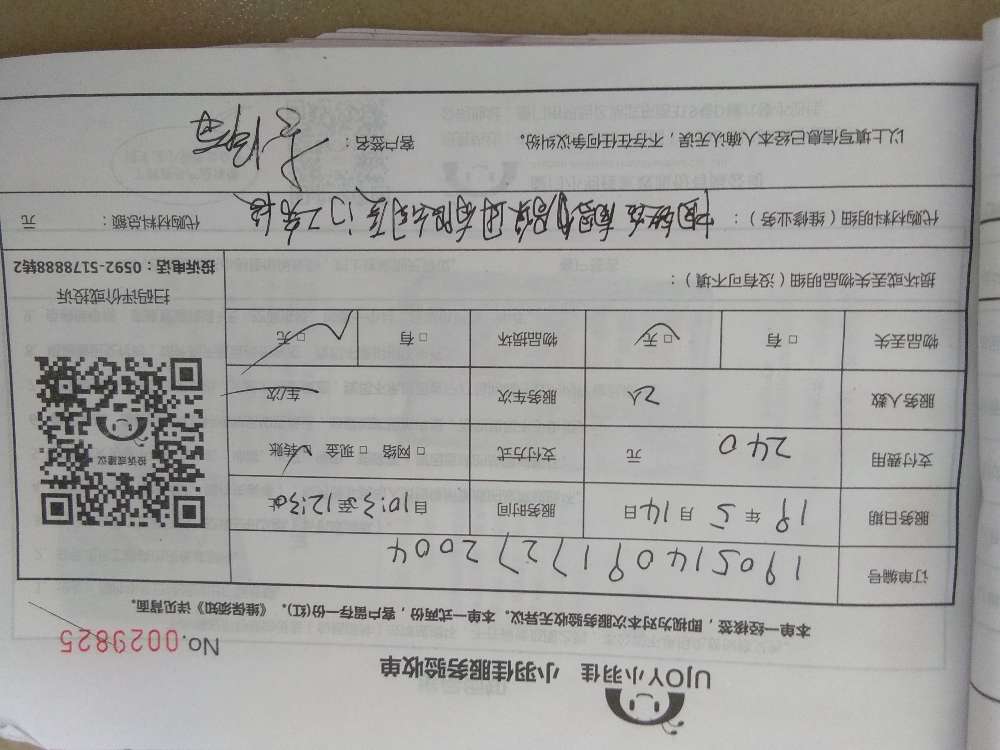 UJOY小羽佳 小羽佳服务验收单
No.0029825
本单一经核签，即视为对本次服务验收无异议。本单一式两份，客户留存一份(红)。《维保须知》详见背面。
订单编号 1905140917272004
服务日期 19年5月14日 服务时间 自10:30至12:30
支付费用 240 元 支付方式 □网络 □现金 □转账
服务人数 2人 服务车次 车次
物品丢失 □有 □无 物品损坏 □有 □无
投诉或建议
扫码评价或投诉
投诉电话：0592-5178888转2
损坏或丢失物品明细（没有可不填）：
代购材料明细（维修业务）： 代购材料总额： 元
以上填写信息已经本人确认无误，不存在任何争议纠纷。 客户签名：